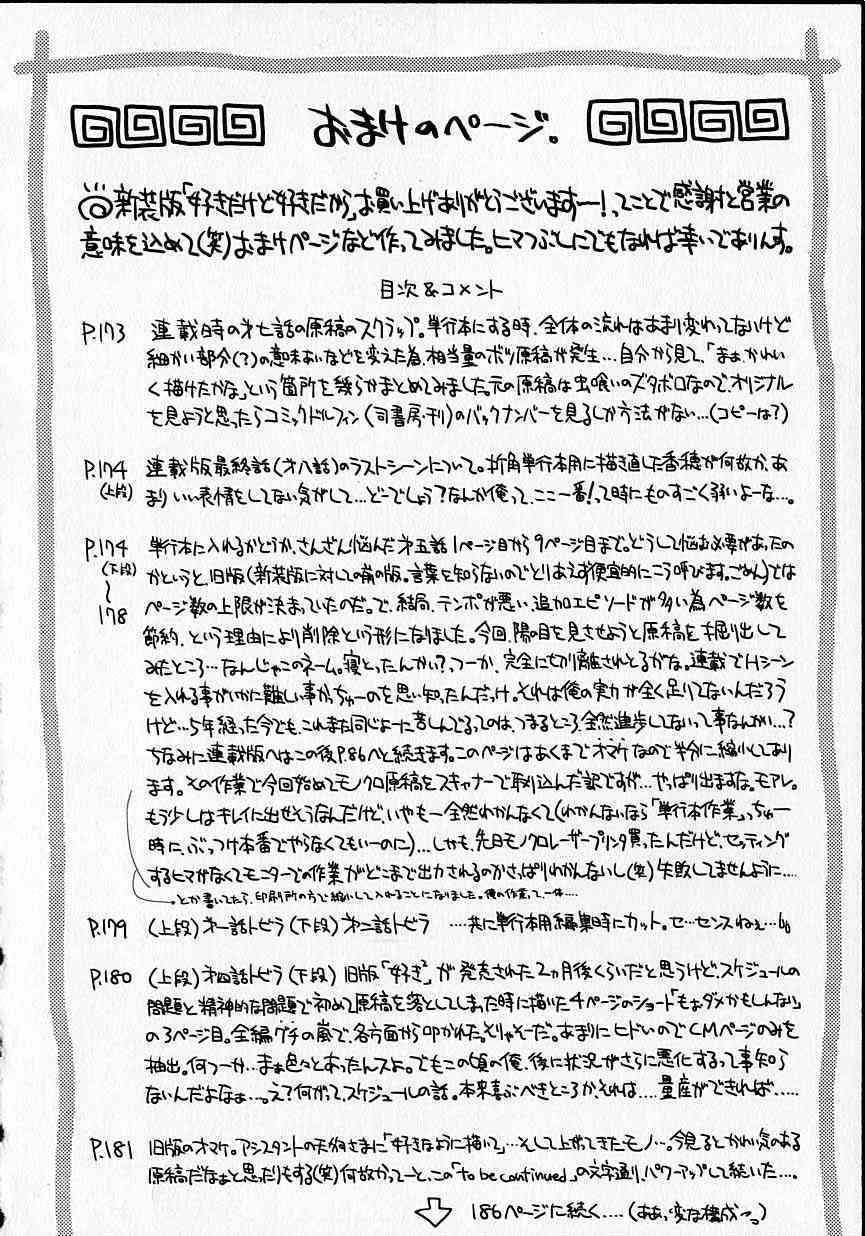 おまけのページ。
新装版「好きだけど好きだから」お買い上げありがとうございますー!ってことで感謝と営業の
意味を込めて(笑)おまけページなど作ってみました。ヒマつぶしにでもなれば幸いでありんす。
目次&コメント
P.173 連載時の才七話の原稿のスクラップ。単行本にする時、全体の流れはあまり変わってないけど
細かい部分(?)の意味あいなどを変えた為、相当量のボツ原稿が発生…自分から見て、「まぁ、かわい
く描けたかな」という箇所を幾らかまとめてみました。元の原稿は虫喰いのズタボロなので、オリジナル
を見ようと思ったらコミックドルフィン(司書房・刊)のバックナンバーを見るしか方法がない…(コピーは?)
P.174 連載版最終話(才八話)のラストシーンについて。折角単行本用に描き直した香穂が何故か、あ
(上段) まりいい表情をしてない気がして…どーでしょう?なんか俺って、ここ一番!って時にものすごく弱いよーな…。
P.174 単行本に入れるかどうか、さんざん悩んだ才五話1ページ目から9ページ目まで。どうして悩む必要があったの
(下段) かというと、旧版(新装版に対しての前の版。言葉を知らないのでとりあえず便宜的にこう呼びます。ごめん)では
〜 ページ数の上限が決まっていたのだ。で、結局、テンポが悪い、追加エピソードが多い為ページ数を
178 節約、という理由により削除という形になりました。今回、陽の目を見させようと原稿を掘り出して
みたところ…なんじゃこのネーム。寝とったんかい?、つーか、完全に切り離されとるがな。連載でHシーン
を入れる事がいかに難しい事か、ちゅーのを思い知ったんだっけ。それは俺の実力が全く足りてないんだろう
けど…5年経った今でも、これまた同じよーに苦しんでる、ってのは、つまるところ、全然進歩してないって事なんかい…?
ちなみに連載版へはこの後P.86へと続きます。このページはあくまでオマケなので半分に縮小してあり
ます。その作業で今回始めてモノクロ原稿をスキャナーで取り込んだ訳ですが…やっぱり出ますな。モアレ。
もう少しはキレイに出せそうなんだけど、いやもー全然わかんなくて(わかんないなら「単行本作業」っちゅー
時に、ぶっつけ本番でやらなくてもいーのに)…しかも、先日モノクロレーザープリンタ買ったんだけど、セッティング
するヒマがなくてモニターでの作業がどこまで出力されるのかさっぱりわかんないし(笑)失敗してませんように….
→とか書いてたら、印刷所の方で縮小して入れることになりました。俺の作業って、一体….
P.179 (上段)才一話トビラ(下段)才二話トビラ …共に単行本用編集時にカット。セ…センスねぇ…
P.180 (上段)才四話トビラ(下段)旧版「好き²」が発売された2ヵ月後くらいだと思うけど、スケジュールの
問題と精神的な問題で初めて原稿を落としてしまった時に描いた4ページのショート「もぉダメかもしんない」
の3ページ目。全編グチの嵐で、各方面から叩かれた。そりゃそーだ。あまりにヒドいのでCMページのみを
抽出。何つーか…まぁ色々とあったんスよ。でもこの頃の俺、後に状況がさらに悪化するって事知ら
ないんだよなぁ…。え?何がって、スケジュールの話。本来喜ぶべきところか、それは….量産ができれば…..
P.181 旧版のオマケ。アシスタントの さまに「好きなように描いて」…そして上がってきたモノ…。今見るとかわい気のある
原稿だなぁと思ったりもする(笑)何故かってーと、この「to be continued」の文字通り、パワーアップして続いた….
186ページに続く….(ああっ、変な構成っっ)